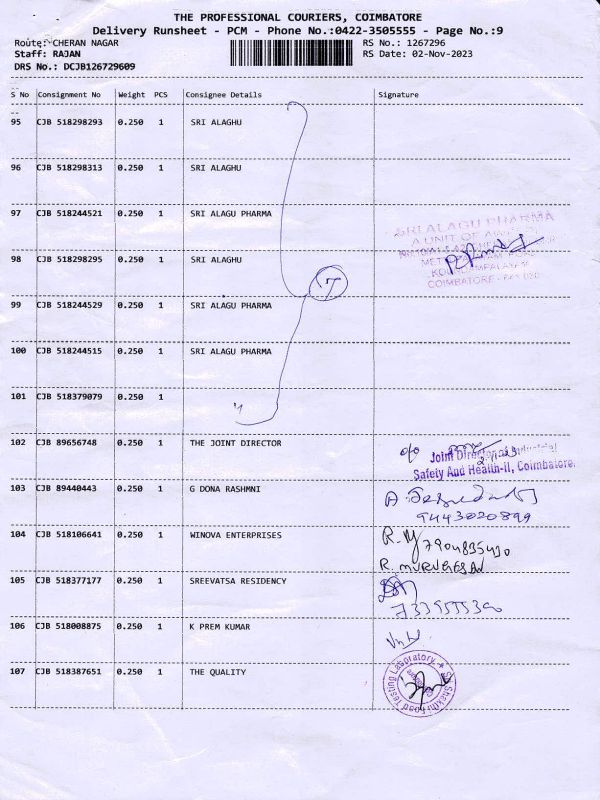 THE PROFESSIONAL COURIERS, COIMBATORE
Delivery Runsheet - PCM - Phone No.:0422-3505555 - Page No.:9
Route: CHERAN NAGAR RS No.: 1267296
Staff: RAJAN RS Date: 02-Nov-2023
DRS No.: DCJB126729609
S No Consignment No Weight PCS Consignee Details Signature
95 CJB 518298293 0.250 1 SRI ALAGHU
96 CJB 518298313 0.250 1 SRI ALAGHU
97 CJB 518244521 0.250 1 SRI ALAGU PHARMA
SRI ALAGU PHARMA
A UNIT OF
98 CJB 518298295 0.250 1 SRI ALAGHU
COIMBATORE
7
99 CJB 518244529 0.250 1 SRI ALAGU PHARMA
100 CJB 518244515 0.250 1 SRI ALAGU PHARMA
101 CJB 518379079 0.250 1
102 CJB 89656748 0.250 1 THE JOINT DIRECTOR
Joint Director of Industrial
Safety And Health-II, Coimbatore.
103 CJB 89440443 0.250 1 G DONA RASHMNI
9443020899
104 CJB 518106641 0.250 1 WINOVA ENTERPRISES
R. MURUGESAN
105 CJB 518377177 0.250 1 SREEVATSA RESIDENCY
106 CJB 518008875 0.250 1 K PREM KUMAR
107 CJB 518387651 0.250 1 THE QUALITY
Sri Shakthi Food Testing Laboratory